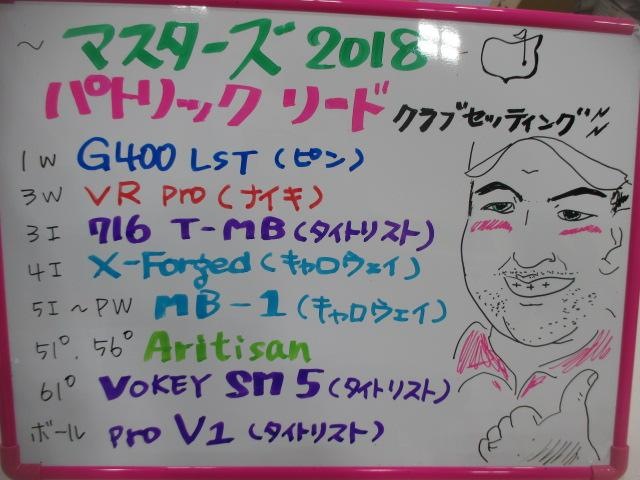 ～ マスターズ 2018 ～
パトリック リード
クラブセッティング
1W G400 LST (ピン)
3W VR Pro (ナイキ)
3I 716 T-MB (タイトリスト)
4I X-Forged (キャロウェイ)
5I～PW MB-1 (キャロウェイ)
51°. 56° Aritisan
61° VOKEY SM5 (タイトリスト)
ボール pro V1 (タイトリスト)